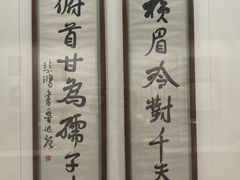 橫眉冷對千夫
俯首甘為孺子
悲鴻書魯迅語